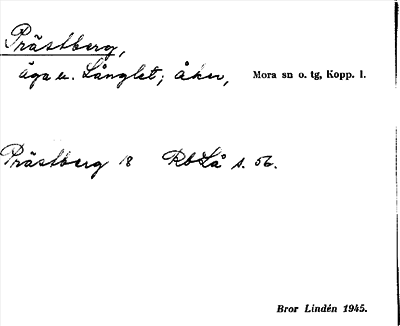 Prästberg,
äga u. Långlet; åker, Mora sn o. tg, Kopp. l.
Prästberg 18 RbLå s. 56.
Bror Lindén 1945.